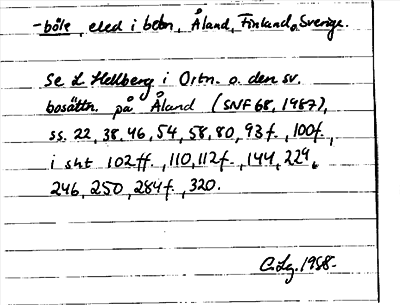 -böle, eled i bebn, Åland, Finland o. Sverige.
Se L Hellberg i Ortn. o. den sv.
bosättn. på Åland (SNF 68, 1987),
ss. 22, 38, 46, 54, 58, 80, 93f., 100f.,
i sht 102ff., 110, 112f., 144, 229,
246, 250, 284f., 320.
C.Lg. 1988-